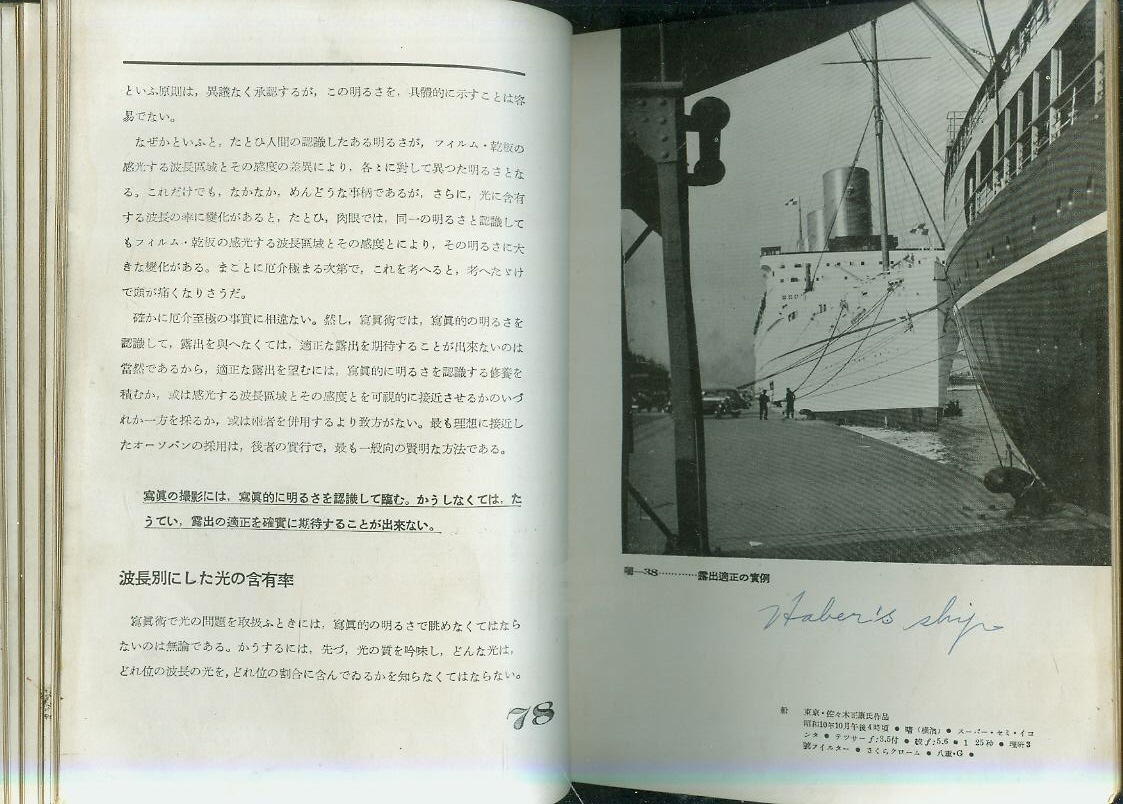 といふ原則は，異議なく承認するが，この明るさを，具體的に示すことは容
易でない。
なぜかといふと，たとひ人間の認識したある明るさが，フィルム・乾板の
感光する波長區域とその感度の差異により，各々に對して異つた明るさとな
る。これだけでも，なかなか，めんどうな事柄であるが，さらに，光に含有
する波長の率に變化があると，たとひ，肉眼では，同一の明るさと認識して
もフィルム・乾板の感光する波長區域とその感度とにより，その明るさに大
きな變化がある。まことに厄介極まる次第で，これを考へると，考へたゞけ
で頭が痛くなりさうだ。
確かに厄介至極の事實に相違ない。然し，寫眞術では，寫眞的の明るさを
認識して，露出を與へなくては，適正な露出を期待することが出來ないのは
當然であるから，適正な露出を望むには，寫眞的に明るさを認識する修養を
積むか，或は感光する波長區域とその感度とを可視的に接近させるかのいづ
れか一方を採るか，或は兩者を併用するより致方がない。最も理想に接近し
たオーソパンの採用は，後者の實行で，最も一般向の賢明な方法である。
寫眞の撮影には，寫眞的に明るさを認識して臨む。かうしなくては，た
うてい，露出の適正を確實に期待することが出來ない。
波長別にした光の含有率
寫眞術で光の問題を取扱ふときには，寫眞的の明るさで眺めなくてはなら
ないのは無論である。かうするには，先づ，光の質を吟味し，どんな光は，
どれ位の波長の光を，どれ位の割合に含んでゐるかを知らなくてはならない。
78
—38…………露出適正の實例
Haber's ship
船 東京・佐々木正康氏作品
昭和10年10月午後4時頃 ● 晴（横濱）● スーパー・セミ・イコ
ンタ ● テツサー f:3.5付 ● 絞 f:5.6 ● 1 25秒 ● 理研3
號フイルター ● さくらクローム ● 八重・G ●